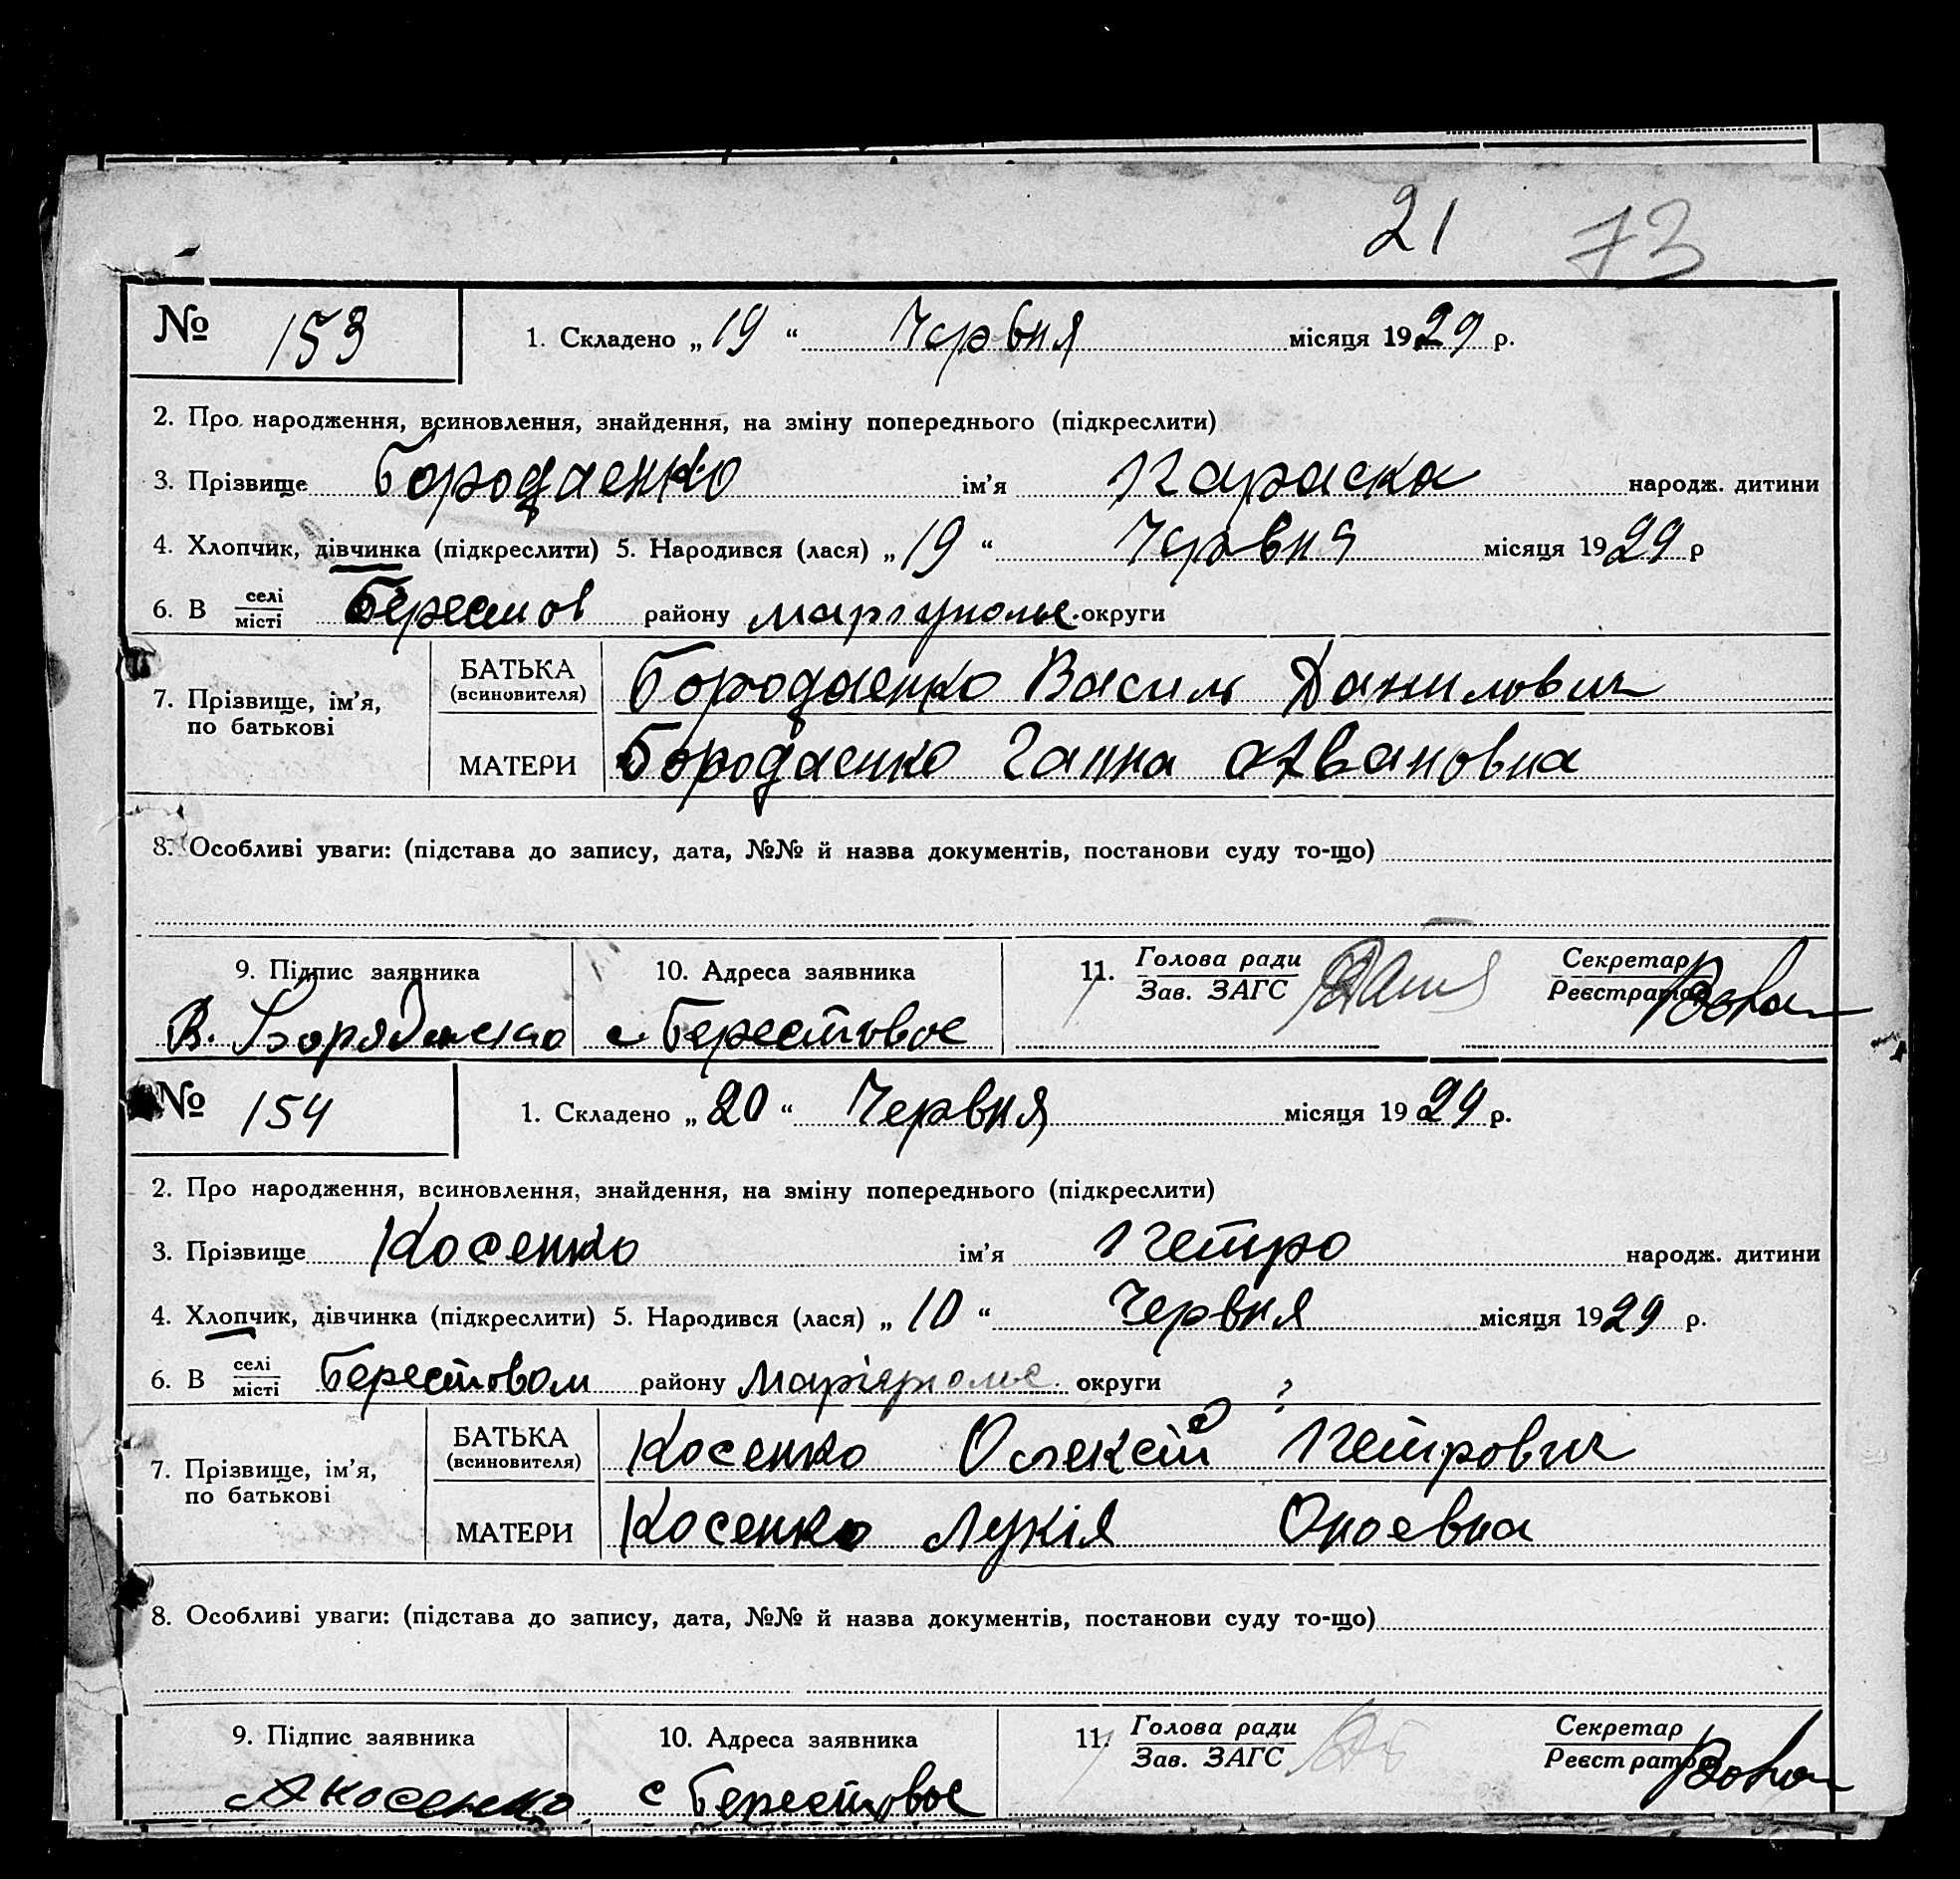 21 73
№ 153 1. Складено „19“ Червня місяця 1929 р.
2. Про народження, всиновлення, знайдення, на зміну попереднього (підкреслити)
3. Прізвище Бородаенко ім’я Параска народж. дитини
4. Хлопчик, дівчинка (підкреслити) 5. Народився (лася) „19“ Червня місяця 1929 р
6. В селі/місті Берестов району Маріуполье округи
7. Прізвище, ім’я, по батькові
БАТЬКА (всиновителя) Бородаенко Василь Данилович
МАТЕРИ Бородаенко Ганна
8. Особливі уваги: (підстава до запису, дата, №№ й назва документів, постанови суду то-що)
9. Підпис заявника 10. Адреса заявника 11. Голова ради/Зав. ЗАГС Секретар/Реєстратор
В. с Берестовое
№ 154 1. Складено „20“ Червня місяця 1929 р.
2. Про народження, всиновлення, знайдення, на зміну попереднього (підкреслити)
3. Прізвище Косенко ім’я Петро народж. дитини
4. Хлопчик, дівчинка (підкреслити) 5. Народився (лася) „10“ Червня місяця 1929 р.
6. В селі/місті Берестовом району Маріуполье округи
7. Прізвище, ім’я, по батькові
БАТЬКА (всиновителя) Косенко Олексій Петрович
МАТЕРИ Косенко Лукія
8. Особливі уваги: (підстава до запису, дата, №№ й назва документів, постанови суду то-що)
9. Підпис заявника 10. Адреса заявника 11. Голова ради/Зав. ЗАГС Секретар/Реєстратор
А Косенко с Берестовое